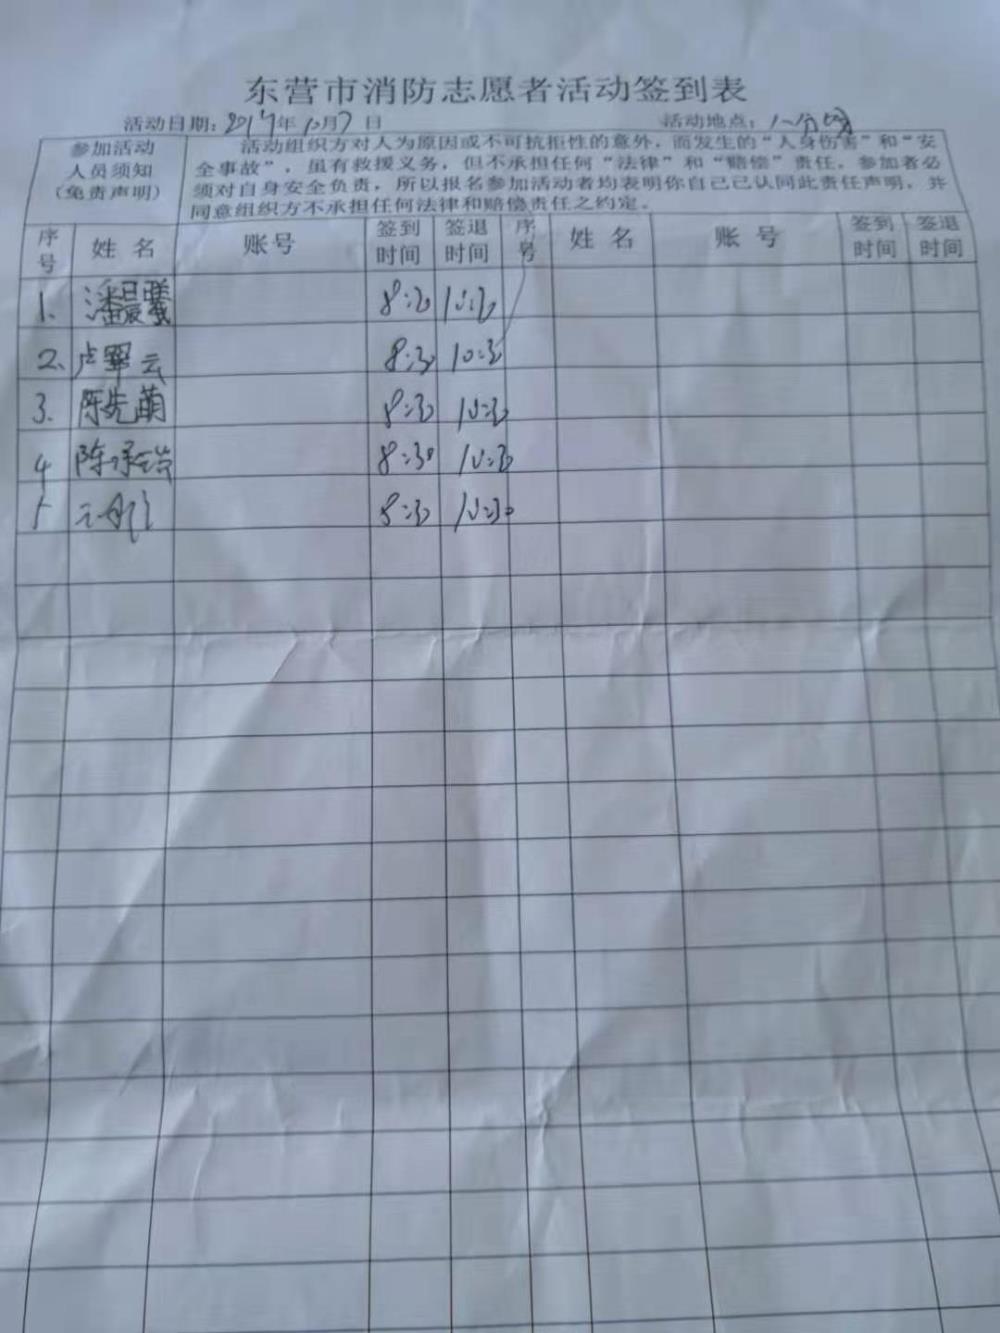 东营市消防志愿者活动签到表
活动日期：2019年10月7日 活动地点：
参加活动人员须知（免责声明）
活动组织方对人为原因或不可抗拒性的意外，而发生的“人身伤害”和“安
全事故”，虽有救援义务，但不承担任何“法律”和“赔偿”责任。参加者必
须对自身安全负责，所以报名参加活动者均表明你自己已认同此责任声明，并
同意组织方不承担任何法律和赔偿责任之约定。
序号 姓名 账号 签到时间 签退时间 序号 姓名 账号 签到时间 签退时间
1. 潘晨曦 8:30 10:30
2. 卢翠云 8:30 10:30
3. 陈先萌 8:30 10:30
4 陈 8:30 10:30
5 8:30 10:30